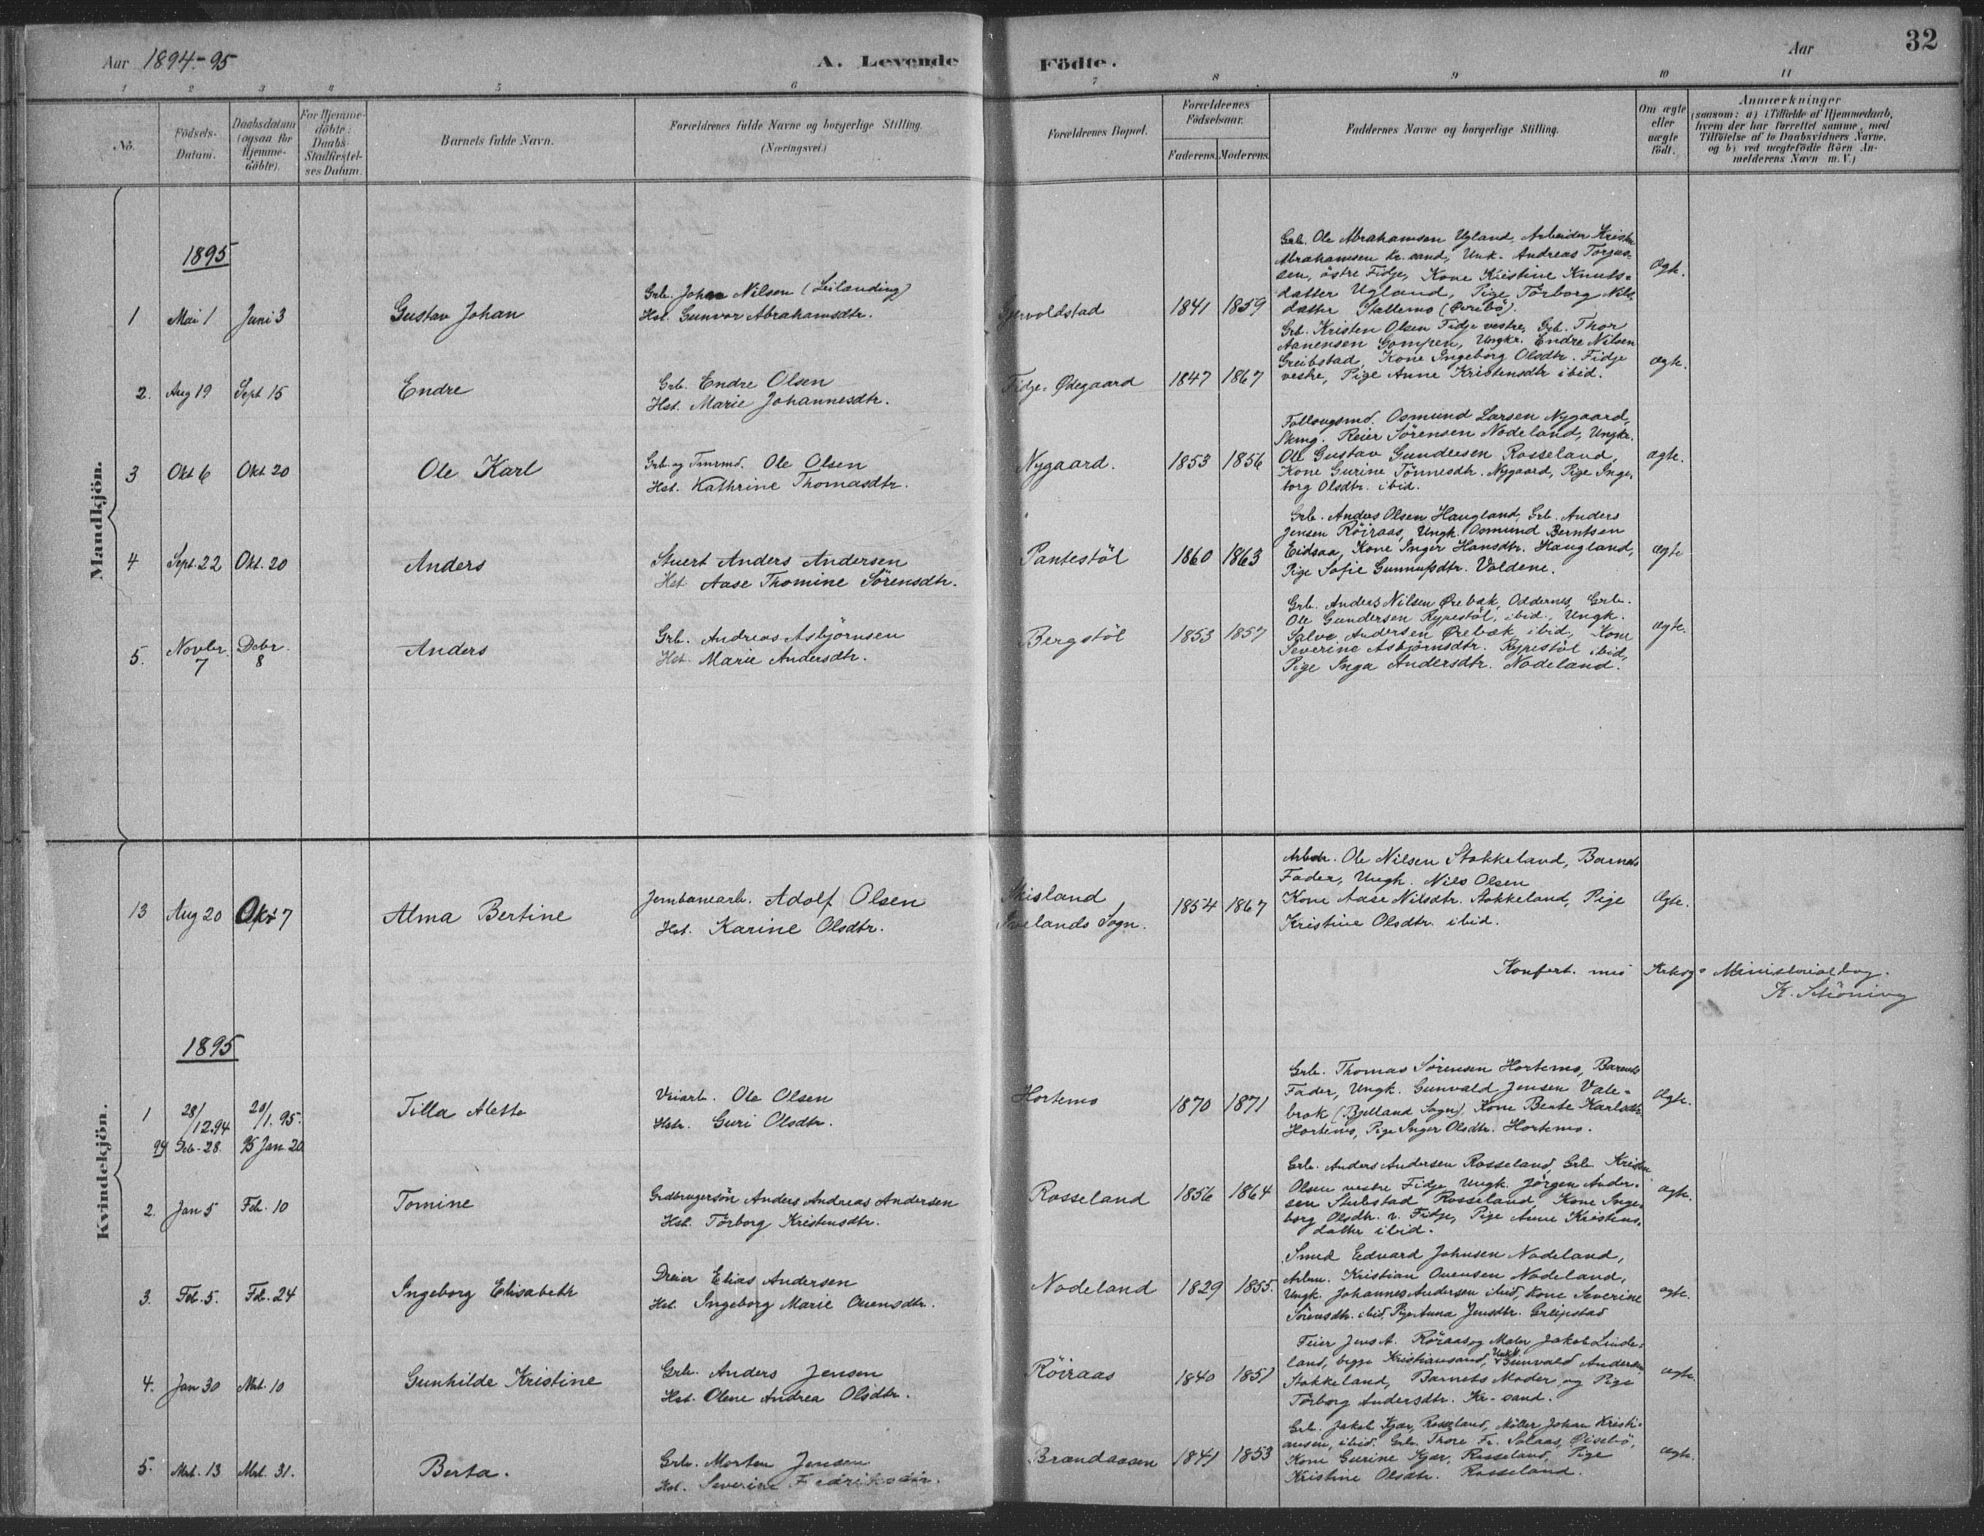 Aar 1894-95
A. Levende
Födte.
Aar
32
1 2 3 4 5 6 7 8 9 10 11
No.
Födsels-
Datum.
Daabsdatum
(ogsaa for
Hjemme-
döbte).
For Hjemme-
döbte:
Daabs-
Stadfæstel-
ses Datum.
Barnets fulde Navn.
Forældrenes fulde Navne og borgerlige Stilling.
(Næringsvei.)
Forældrenes Bopæl.
Forældrenes
Födselsaar.
Faderens.
Moderens.
Faddernes Navne og borgerlige Stilling.
Om ægte
eller
uægte
födt.
Anmærkninger
(saasom: a) i Tilfælde af Hjemmedaab,
hvem der har forrettet samme, med
Tilföielse af to Daabsvidners Navne,
og b) ved uægtefödte Börn An-
melderens Navn m. V.)
Mandkjön.
1895
1 Mai 1 Juni 3
Gustav Johan
Grb. Johan Nilsen (Leilænding)
Hst. Gunvor Abrahamsdtr.
1841 1859
Grb. Ole Abrahamsen Ugland, Arbeider
Abrahamsen Kr.sand, Unk. Andreas
sen, östre Fidje, Kone Kristine Knuts-
datter Ugland, Pige Törborg Nils-
datter Stallemo (Øvrebö).
Ægt.
2. Aug 19 Sept 15
Endre
Grb. Endre Olsen
Hst. Marie Johannesdtr.
Fidje, Ødegaard
1847 1867
Grb. Kristen Olsen Fidje vestre, Grb. Thor
Aanensen Gompen, Ungkr. Endre Nilsen
Greibstad, Kone Ingeborg Olsdtr. Fidje
vestre, Pige Anne Kristensdtr ibid.
ægte.
3 Okt 6 Okt 20
Ole Karl
Grb. og Tmrmd. Ole Olsen
Hst. Kathrine Thomasdtr.
Nygaard.
1853 1856
Osmund Larsen Nygaard,
Reier Sörensen Nodeland, Ungkr.
Ole Gustav Gundersen Rosseland,
Kone Gurine Tönnesdtr. Nygaard, Pige Inge-
borg Olsdtr. ibid.
ægte.
4 Sept. 22 Okt. 20
Anders
Stuert Anders Andersen
Hst. Aase Thomine Sörensdtr.
Pantestöl
1860 1863
Grb. Anders Olsen Haugland, Grb. Anders
Jensen Röiraas, Ungk. Osmund Berntsen
Eidsaa, Kone Inger Hansdtr. Haugland,
Pige Sofie Voldene.
ægte
5. Novbr. 7 Dcbr. 8
Anders
Grb. Andreas Asbjörnsen
Hst. Marie Andersdtr.
Bergstöl
1853 1857
Grb. Anders Nilsen Ørebæk, Oddernes, Grb.
Ole Gundersen Rypestöl, ibid, Ungk.
Salve Andersen Ørebæk ibid, Kone
Severine Asbjörnsdtr. Rypestöl ibid,
Pige Inga Andersdtr. Nodeland.
ægte.
13 Aug 20 Okt 7
Alma Bertine
Jernbanearb. Adolf Olsen
Hst. Karine Olsdtr.
Skisland
Sogn.
1854 1867
Arbdr. Ole Nilsen Stokkeland, Barnets
Fader, Ungk. Nils Olsen
Kone Aase Nilsdtr. Stokkeland, Pige
Kristine Olsdtr. ibid.
Ægte.
Konfert. med Ministerialbog.
K. Schöning
Kvindekjön.
1895
1 28/12.94 20/1.95.
94 Dcb-28. 95 Jan 20.
Tilla Alette
Veiarb. Ole Olsen
Hstr. Guri Olsdtr.
Hortemo
1870 1871
Grb. Thomas Sörensen Hortemo, Barnets
Fader, Ungk. Gunvald Jensen Vale-
brok (Bjelland Sogn), Kone Berte Karlsdtr.
Hortemo, Pige Inger Olsdtr. Hortemo.
Ægte.
2. Jan 5 Feb. 10
Tomine
Grdbrugersön Anders Andreas Andersen
Hst. Törborg Kristensdtr.
Rosseland
1856 1864
Grb. Anders Andersen Rosseland, Grb. Kristen
Olsen vestre Fidje, Ungk. Jörgen Ander-
sen Stubstad Rosseland, Kone Inge-
borg Olsdtr. v. Fidje, Pige Anne Kristens-
datter ibid.
ægte.
3. Feb. 5. Feb. 24
Ingeborg Elisabeth
Dreier Elias Andersen
Hst. Ingeborg Marie Ouensdtr.
Nodeland
1829 1855.
Smed Edvard Johnsen Nodeland,
Kristian Ouensen Nodeland,
Ungk. Johannes Andersen ibid, Kone Severine
Sörensdtr. ibid, Pige Anna Jensdtr. Greipstad
ægte.
4. Jan 30 Mrt. 10
Gunhilde Kristine
Grb. Anders Jensen
Hst. Olene Andrea Olsdtr.
Röiraas
1840 1851
Feier Jens A. Röiraas og Maler Jakob Linde-
land, begge Kristiansand, Ungk. Gunvald Andersen
Stokkeland, Barnets Moder og Pige
Törborg Andersdtr. Kr-sand.
ægte.
5. Mrt. 13 Mrt. 31.
Berta.
Grb. Morten Jensen
Hst. Severine Fredriksdtr.
Brandaasen
1841 1853
Grb. Jakob Kjær, Rosseland, Möller Johan Kristi-
ansen, ibid. Grb. Thore Fr. Solaas, Øiseböe,
Kone Gurine Kjær, Rosseland, Pige
Kristine Olsdtr. Rosseland.
ægte.